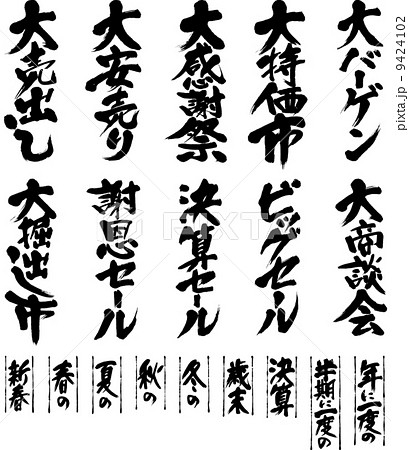 大バーゲン
大特価市
大感謝祭
大安売り
大売出し
大商談会
ビッグセール
決算セール
謝恩セール
大掘出し市
年に一度の
半期に一度の
決算
歳末
冬の
秋の
夏の
春の
新春
PIXTA
pixta.jp - 9424102